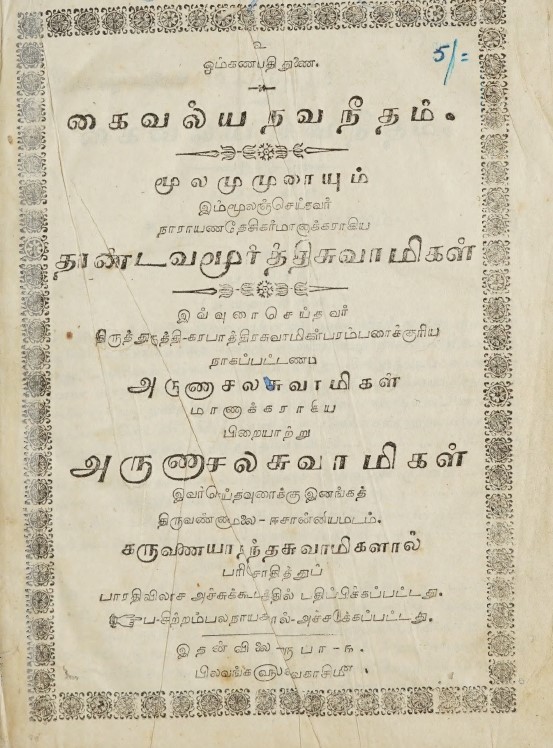 உ
ஓம்கணபதி துணை.
5/=
கைவல்ய நவநீதம்.
மூலமுமுரையும்
இம்மூலஞ்செய்தவர்
நாராயணதேசிகர்மாணாக்கராகிய
தாண்டவமூர்த்திசுவாமிகள்
இவ்வுரைசெய்தவர்
திருத்துருத்தி-கரபாத்திரசுவாமிகள்பரம்பரைக்குரிய
நாகப்பட்டணம்
அருணாசலசுவாமிகள்
மாணாக்கராகிய
பிறையாற்று
அருணாசலசுவாமிகள்
இவர்செய்தவுரைக்கு இணங்கத்
திருவண்ணாமலை - ஈசான்னியமடம்.
கருணையாநந்தசுவாமிகளால்
பரிசோதித்துப்
பாரதிவிலாச அச்சுக்கூடத்தில் பதிப்பிக்கப்பட்டது.
ப-சிற்றம்பலநாயகரால்-அச்சிக்கப்பட்டது.
இதன்விலை ரூபா - ௩.
பிலவங்க௵ வைகாசி௴